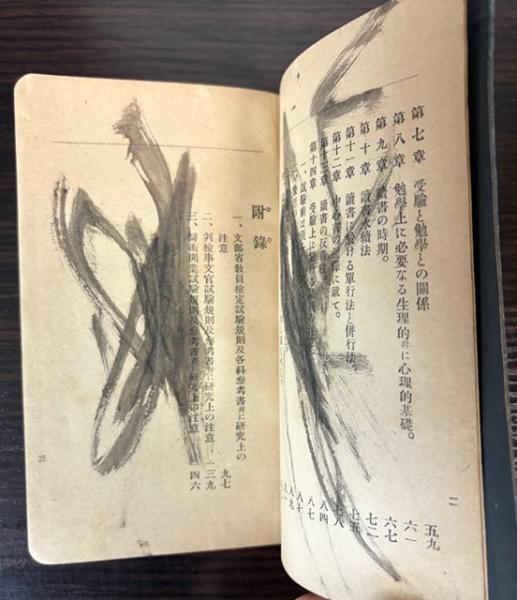 二
第七章 受驗と勉學との關係 五九
第八章 勉學上に必要なる生理的幷に心理的基礎。 六一
第九章 讀書の時期。 六七
第十章 讀書永續法 七二
第十一章 讀書に於ける單行法と併行法。 七五
第十二章 中心書の選擇に就て。 七八
第十三章 讀書の反復法。 八四
第十四章 受驗上に於ける 八七
一、試驗前
附錄。
一、文部省敎員檢定試驗規則及各科參考書幷に硏究上の
注意 九七
二、判檢事文官試驗規則及參考書幷に硏究上の注意 一三九
三、醫術開業試驗規則及參考書幷に硏究上の注意 一四六
三